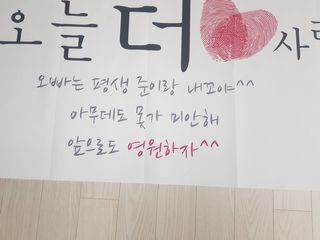 오늘 더 사
오빠는 평생 준이랑 내꼬야^^
아무데도 못가 미안해
앞으로도 영원하자^^